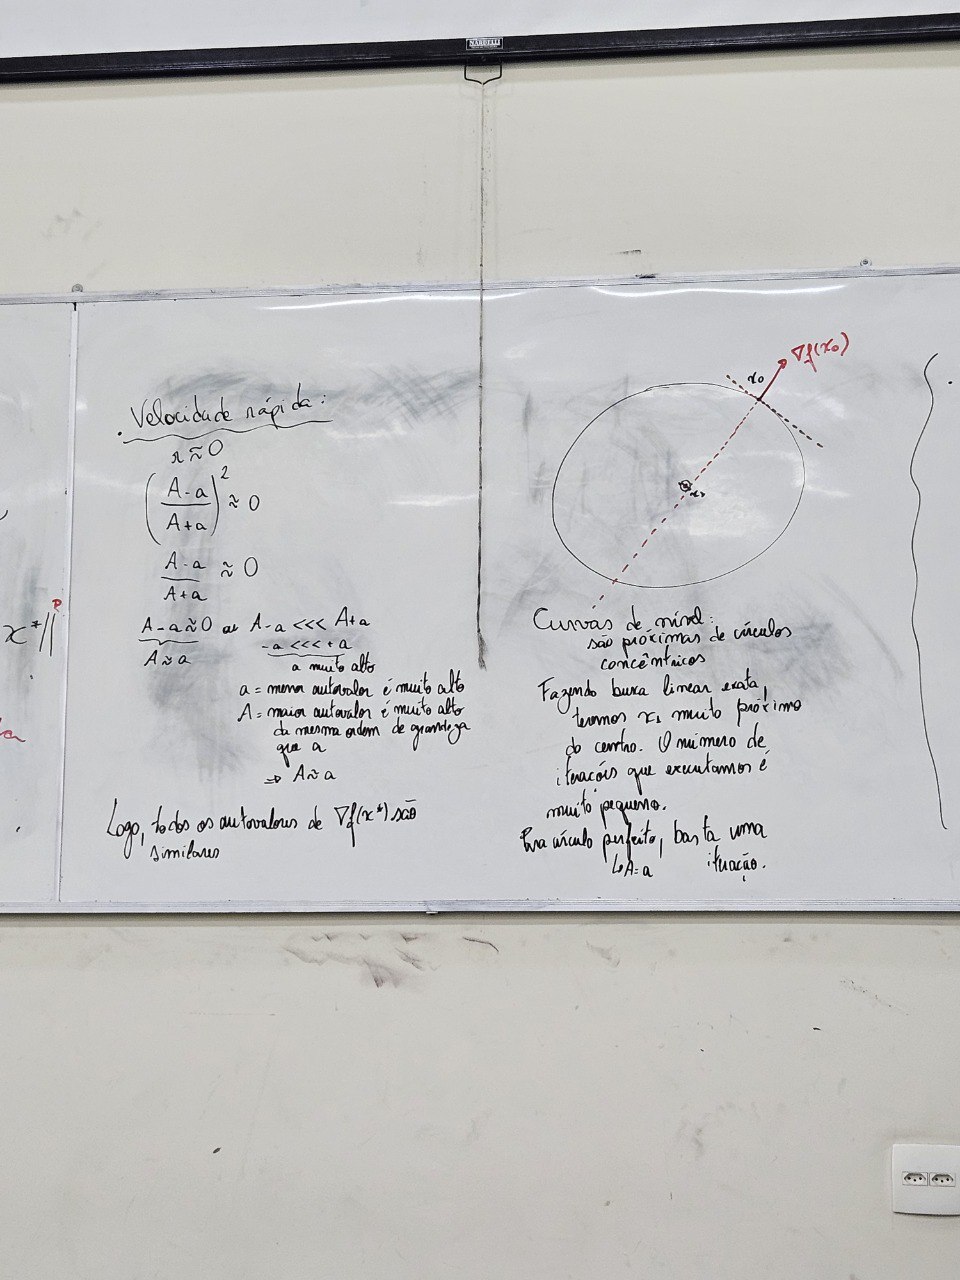 NARDELLI
∇f(x₀)
x₀
x₁
Velocidade rápida:
r ≈ 0
(A-a / A+a)² ≈ 0
A-a / A+a ≈ 0
A-a ≈ 0 ou A-a <<< A+a
A ≈ a
-a <<< +a
a muito alto
a = menor autovalor é muito alto
A = maior autovalor é muito alto
da mesma ordem de grandeza
que a
⇒ A ≈ a
Logo, todos os autovalores de ∇f(x*) são
similares
Curvas de nível:
são próximas de círculos
concêntricos
Fazendo busca linear exata,
teremos x₁ muito próximo
do centro. O número de
iterações que executamos é
muito pequeno.
Pra círculo perfeito, basta uma
↳ A=a iteração.
x*||ᴾ